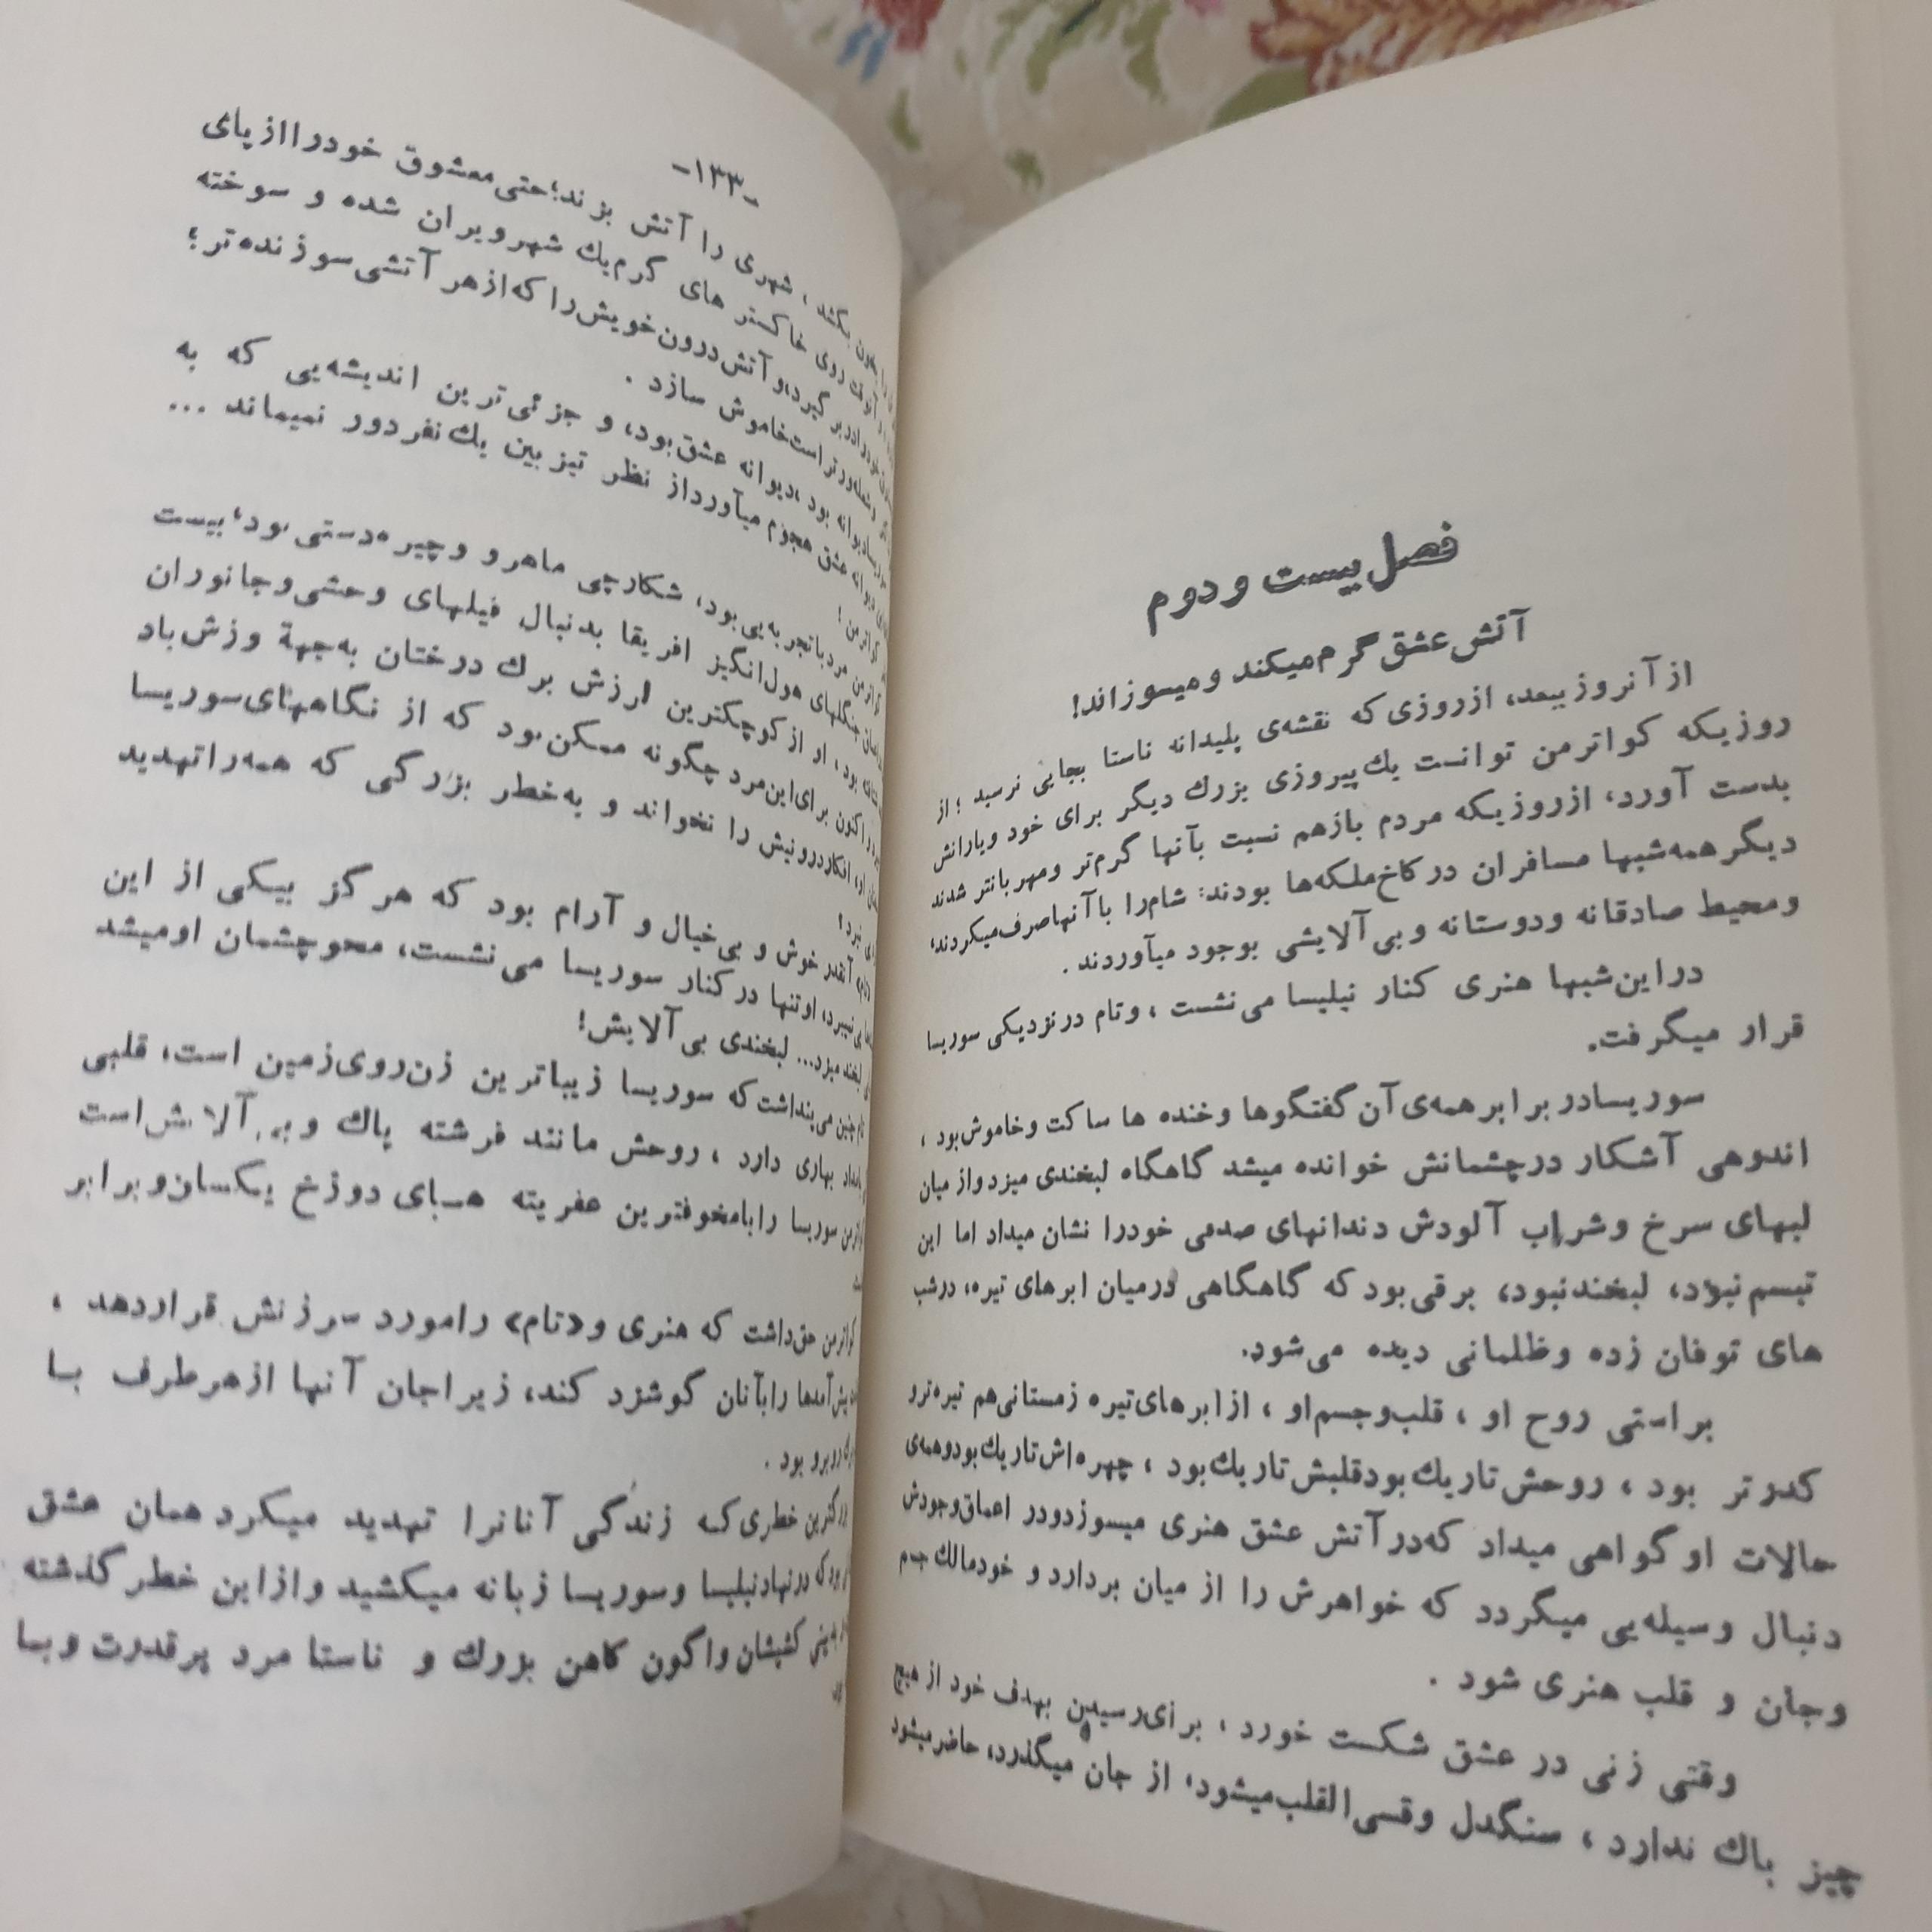 فصل بیست و دوم
آتش عشق گرم میکند و میسوزاند!
از آنروز ببعد، از روزی که نقشه‌ی پلیدانه ناستا بجایی نرسید؛ از
روزیکه کواترمن توانست یك پیروزی بزرك دیگر برای خود و یارانش
بدست آورد، از روزیکه مردم بازهم نسبت بآنها گرم‌تر و مهربانتر شدند
دیگر همه شبها مسافران در کاخ ملکه‌ها بودند: شام را با آنها صرف میکردند،
و محیط صادقانه و دوستانه و بی‌آلایشی بوجود میآوردند.
در این شبها هنری کنار نیلیسا می‌نشست، و تام در نزدیکی سوریسا
قرار میگرفت.
سوریسا در برابر همه‌ی آن گفتگوها و خنده ها ساکت و خاموش بود،
اندوهی آشکار در چشمانش خوانده میشد گاهگاه لبخندی میزد و از میان
لبهای سرخ و شراب آلودش دندانهای صدفی خود را نشان میداد اما این
تبسم نبود، لبخند نبود، برقی بود که گاهگاهی در میان ابرهای تیره، در شب
های توفان زده و ظلمانی دیده می‌شود.
براستی روح او، قلب و جسم او، از ابرهای تیره زمستانی هم تیره‌تر و
کدرتر بود، روحش تاریك بود قلبش تاریك بود، چهره‌اش تاریك بود و همه‌ی
حالات او گواهی میداد که در آتش عشق هنری میسوزد و در اعماق وجودش
دنبال وسیله‌یی میگردد که خواهرش را از میان بردارد و خود مالك جسم
و جان و قلب هنری شود.
وقتی زنی در عشق شکست خورد، برای رسیدن بهدف خود از هیچ
چیز باك ندارد، سنگدل و قسی‌القلب میشود، از جان میگذرد، حاضر میشود
-۱۳۳-
بخون بکشد، شهری را آتش بزند؛ حتی معشوق خود را از پای
آنوقت روی خاکستر های گرم یك شهر ویران شده و سوخته
خود را در بر گیرد، و آتش درون خویش را که از هر آتشی سوزنده‌تر؛
و شعله‌ورتر است خاموش سازد.
سوریسا دیوانه بود، دیوانه عشق بود، و جزئی ترین اندیشه‌یی که به
دیوانه عشق هجوم میآورد از نظر تیزبین یك نفر دور نمیماند ...
کواترمن!
کواترمن مرد باتجربه‌یی بود، شکارچی ماهر و چیره‌دستی بود، بیست
جنگلهای هول‌انگیز افریقا بدنبال فیلهای وحشی و جانوران
بود، او از کوچکترین ارزش برك درختان به جهة وزش باد
اکنون برای این مرد چگونه ممکن بود که از نگاههای سوریسا
او، افکار درونیش را نخواند و به خطر بزرگی که همه را تهدید
نبرد؟
آنقدر خوش و بی‌خیال و آرام بود که هرگز بیکی از این
نمیبرد، او تنها در کنار سوریسا می‌نشست، محو چشمان او میشد
لبخند میزد... لبخندی بی‌آلایش!
تام چنین می‌پنداشت که سوریسا زیباترین زن روی زمین است، قلبی
بامداد بهاری دارد، روحش مانند فرشته پاك و بی آلایش است
کواترمن سوریسا را با مخوفترین عفریته هبای دوزخ یکسان و برابر
کواترمن حق داشت که هنری و «تام» را مورد سرزنش قرار دهد،
پیش‌آمدها را بآنان گوشزد کند، زیرا جان آنها از هر طرف با
روبرو بود.
بزرگترین خطری که زندگی آنانرا تهدید میکرد همان عشق
بود که در نهاد نیلیسا و سوریسا زبانه میکشید و از این خطر گذشته
کشیشان و اگون کاهن بزرك و ناستا مرد پر قدرت و با